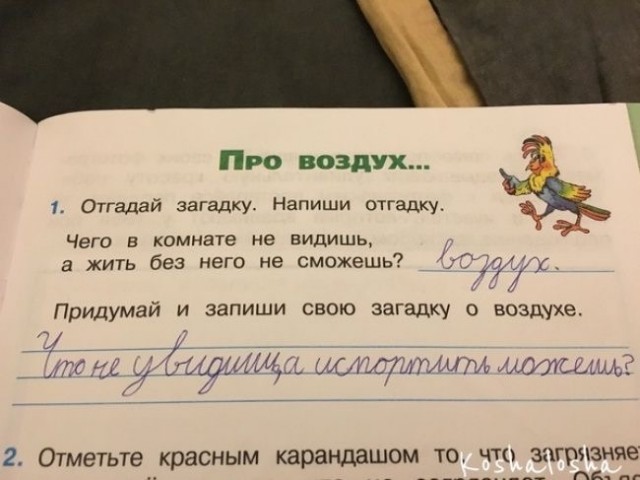 Про воздух...
1. Отгадай загадку. Напиши отгадку.
Чего в комнате не видишь,
а жить без него не сможешь? воздух.
Придумай и запиши свою загадку о воздухе.
Что не увидиш, а испортить можешь?
2. Отметьте красным карандашом то, что загрязняет
koshalosha